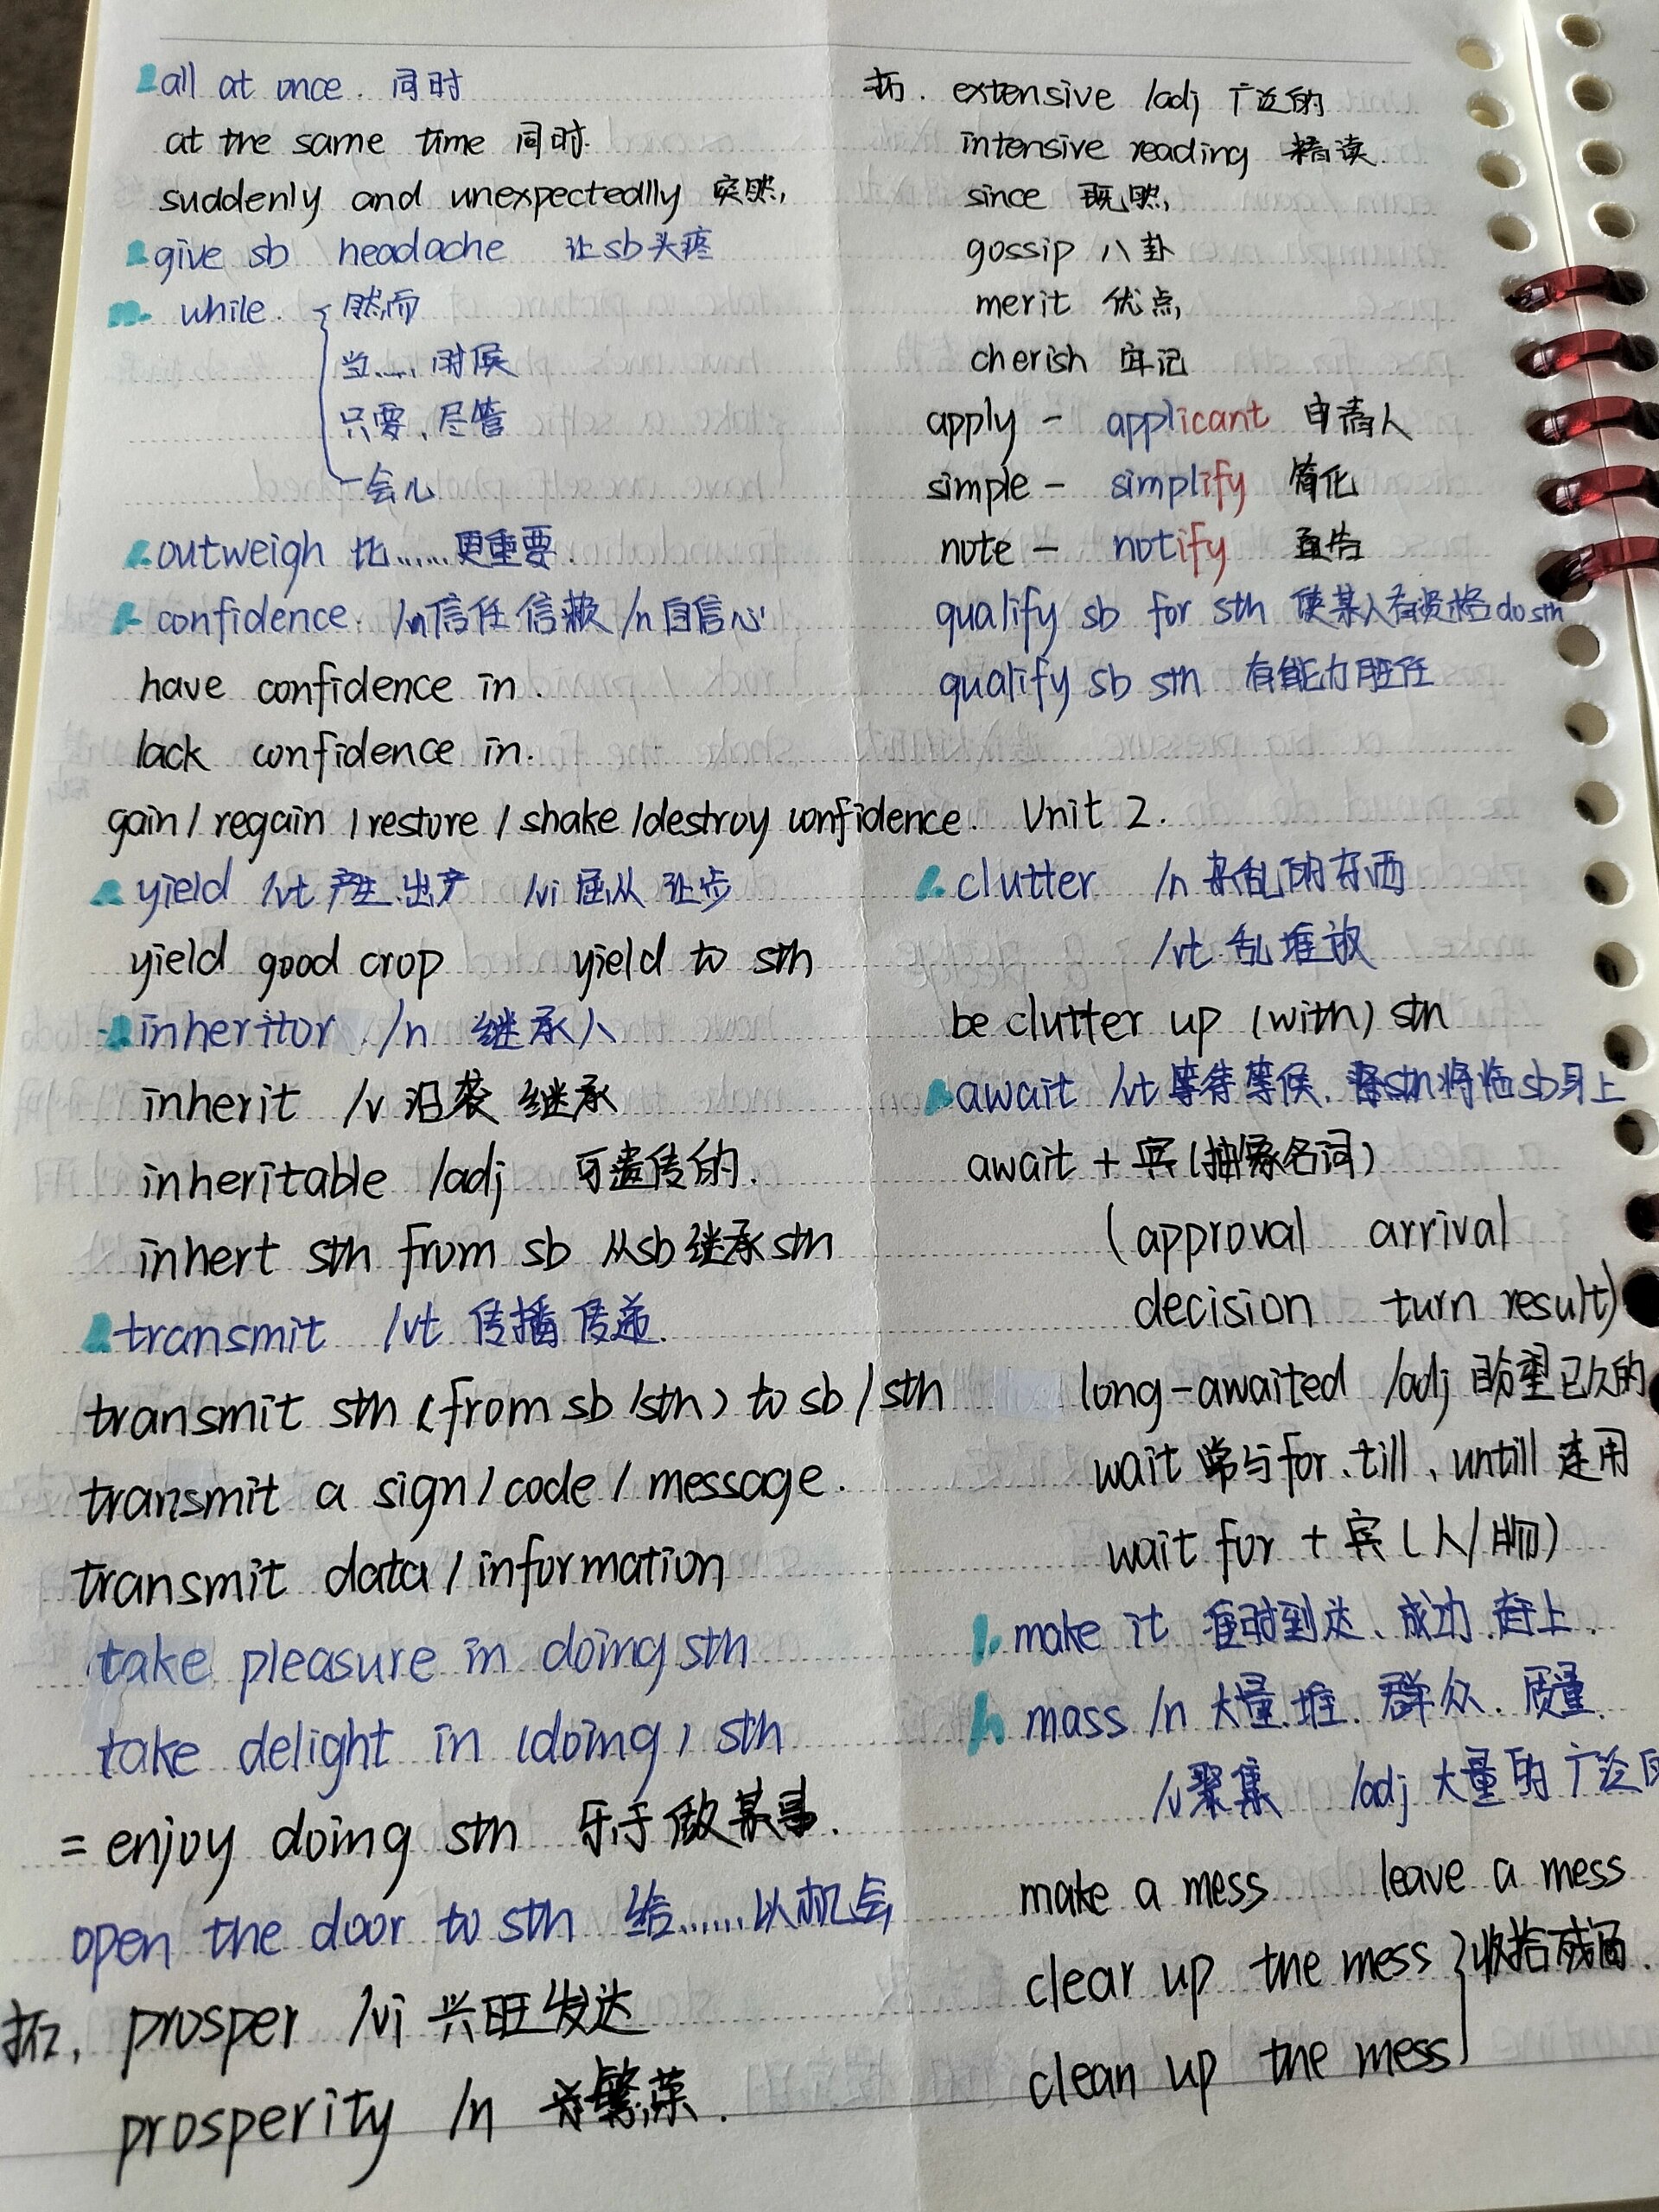 all at once. 同时
at the same time 同时.
suddenly and unexpectedlly 突然,
give sb headache 让sb头疼
while. 然而
当...... 时候
只要, 尽管
一会儿
outweigh 比...... 更重要.
confidence. /n 信任 信赖 /n 自信心
have confidence in.
lack confidence in.
gain / regain / restore / shake / destroy confidence.
yield /vt 产生 出产 /vi 屈从 让步
yield good crop yield to sth
inheritor /n 继承人
inherit /v 沿袭 继承
inheritable /adj 可遗传的.
inhert sth from sb 从sb继承sth
transmit /vt 传播 传递.
transmit sth (from sb / sth) to sb / sth
transmit a sign / code / message.
transmit data / information
take pleasure in doing sth
take delight in (doing) sth
= enjoy doing sth 乐于做某事.
open the door to sth 给......以机会
拓. prosper /vi 兴旺发达
prosperity /n 繁荣.
拓. extensive /adj 广泛的
intensive reading 精读.
since 既然,
gossip 八卦
merit 优点,
cherish 牢记
apply - applicant 申请人
simple - simplify 简化
note - notify 告
qualify sb for sth 使某人有资格do sth
qualify sb sth 有能力胜任
Unit 2.
clutter /n 杂乱的东西
/vt 乱堆放
be clutter up (with) sth
await /vt 等待 等候. sth将临sb身上
await + 宾(抽象名词)
(approval arrival
decision turn result)
long-awaited /adj 盼望已久的
wait 常与for、till、untill 连用
wait for + 宾(人/物)
make it 准时到达、成功. 赶上.
mass /n 大量. 堆. 群众. 质量.
/v 聚集 /adj 大量的 广泛的
make a mess leave a mess
clear up the mess 收拾残局.
clean up the mess